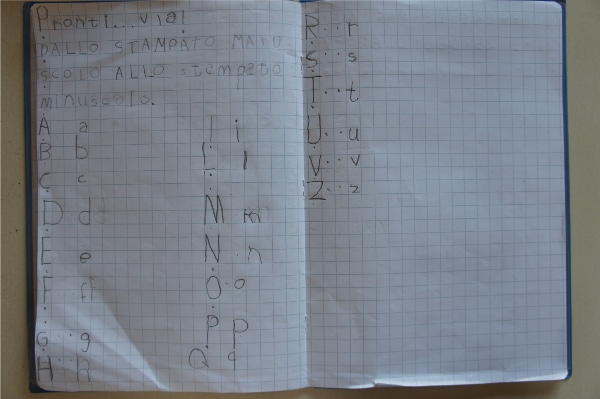 Pronti...via!
DALLO STAMPATO MAIU
SCOLO ALLO stampato
minuscolo.
A a
B b
C c
D d
E e
F f
G g
H h
I i
L l
M m
N n
O o
P p
Q q
R r
S s
T t
U u
V v
Z z